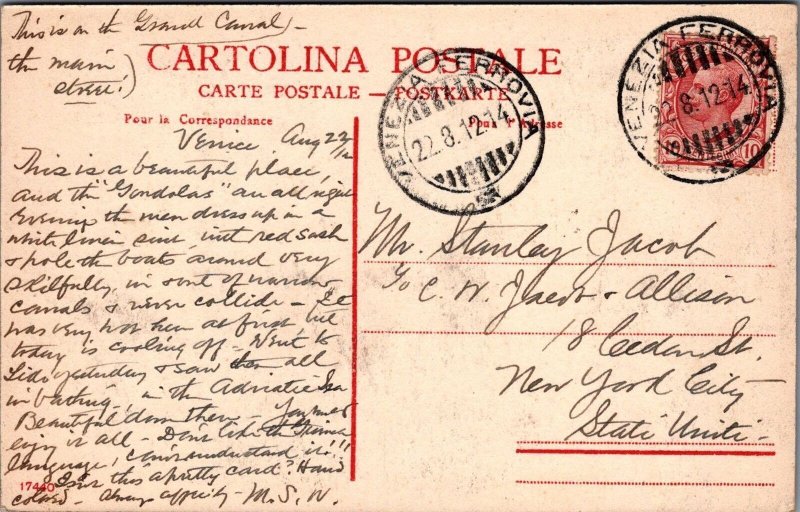 This is on the Grand Canal -
the main
street!)
CARTOLINA POSTALE
CARTE POSTALE — POSTKARTE
Pour la Correspondance
Pour l'Adresse
VENEZIA FERROVIA
22.8.12.14
VENEZIA FERROVIA
22.8.12.14
10
Venice Aug 22/12
This is a beautiful place,
and the "Gondolas" are all right
Evenings the men dress up in a
white linen suit, with red sash
& pole the boats around very
skilfully, in & out of narrow
canals & never collide - It
was very hot here at first, but
today is cooling off - Went to
Lido yesterday & saw them all
in bathing, in the Adriatic Sea
Beautiful down there - You must
enjoy it all - Don't like the
language, can't understand it!!!
Isn't this a pretty card? Hand
colored - always affec'ly - M.S.W.
17440
Mr. Stanley Jacob
c/o C. W. Jacob & Allison
18 Cedar St.
New York City
Stati Uniti -